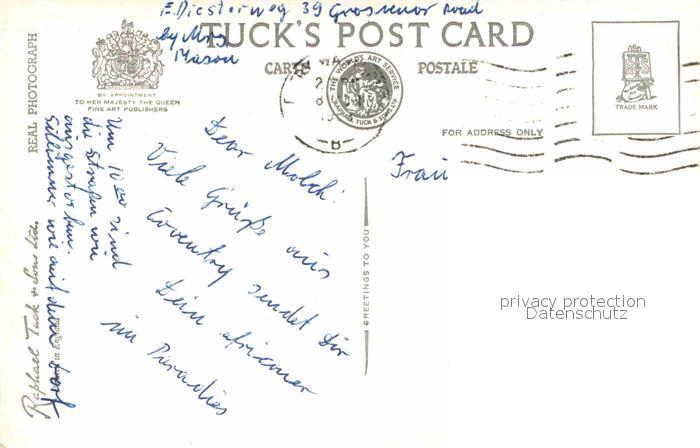 E. Diesterweg 39 Grosvenor Road
by Mrs
Mason
TUCK'S POST CARD
CARTE POSTALE
BY APPOINTMENT
TO HER MAJESTY THE QUEEN
FINE ART PUBLISHERS
THE WORLD'S ART SERVICE
RAPHAEL TUCK & SONS LTD
TRADE MARK
FOR ADDRESS ONLY
REAL PHOTOGRAPH
Raphael Tuck & Sons Ltd.
in England
GREETINGS TO YOU
Dear Molch!
Viele Grüße aus
Coventry sendet Dir
Dein
im Paradies
Um 10 00 sind
die Straßen wie
ausgestorben.
wie auf dem Dorf
Frau
privacy protection
Datenschutz